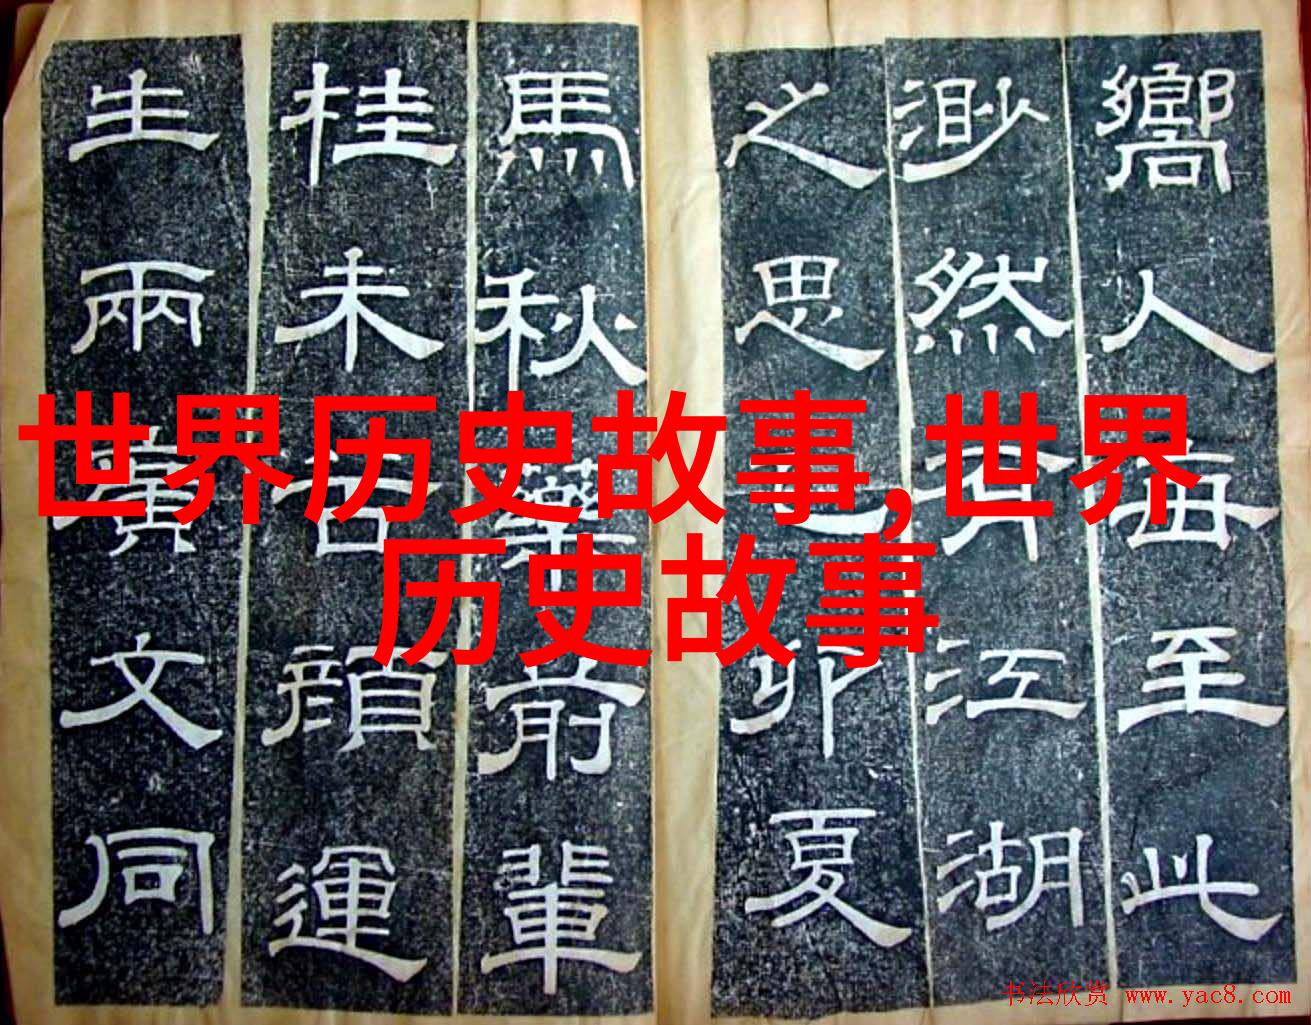 嚮人每至此
渺然有江湖
之思乙卯夏
馬秋藥前輩
桂未谷顏運
生兩廣文同
世界历史故事,世界
历史故事
书法欣赏 www.yac8.com